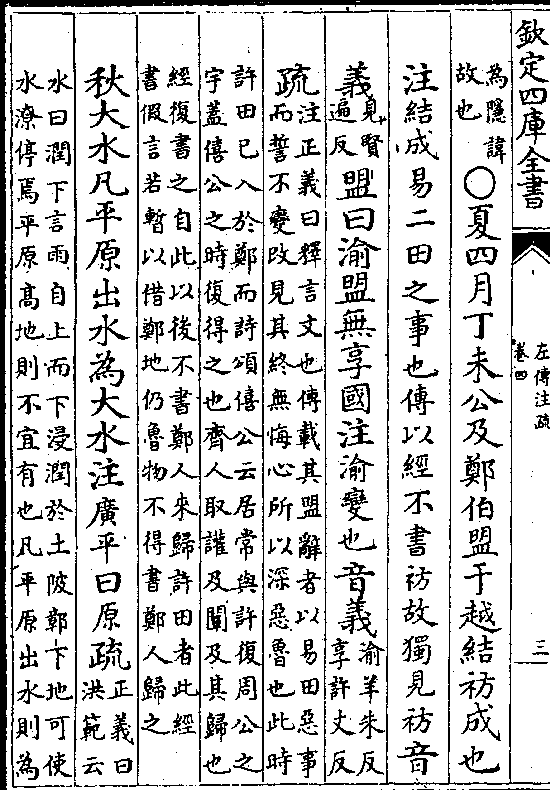 欽定四庫全書
左傳注疏
卷四
三
為隱諱
故也
○夏四月丁未公及鄭伯盟于越結祊成也
注結成易二田之事也傳以經不書祊故獨見祊音
義
見賢
遍反
盟曰渝盟無享國注渝變也音義
渝羊朱反
享許丈反
疏
注正義曰釋言文也傳載其盟辭者以易田惡事
而誓不變改見其終無悔心所以深惡魯也此時
許田已入於鄭而詩頌僖公云居常與許復周公之
宇蓋僖公之時復得之也齊人取讙及闡及其歸也
經復書之自此以後不書鄭人來歸許田者此經
書假言若暫以借鄭地仍魯物不得書鄭人歸之
秋大水凡平原出水為大水注廣平曰原疏
正義曰
洪範云
水曰潤下言雨自上而下浸潤於土陂鄣下地可使
水潦停焉平原高地則不宜有也凡平原出水則為